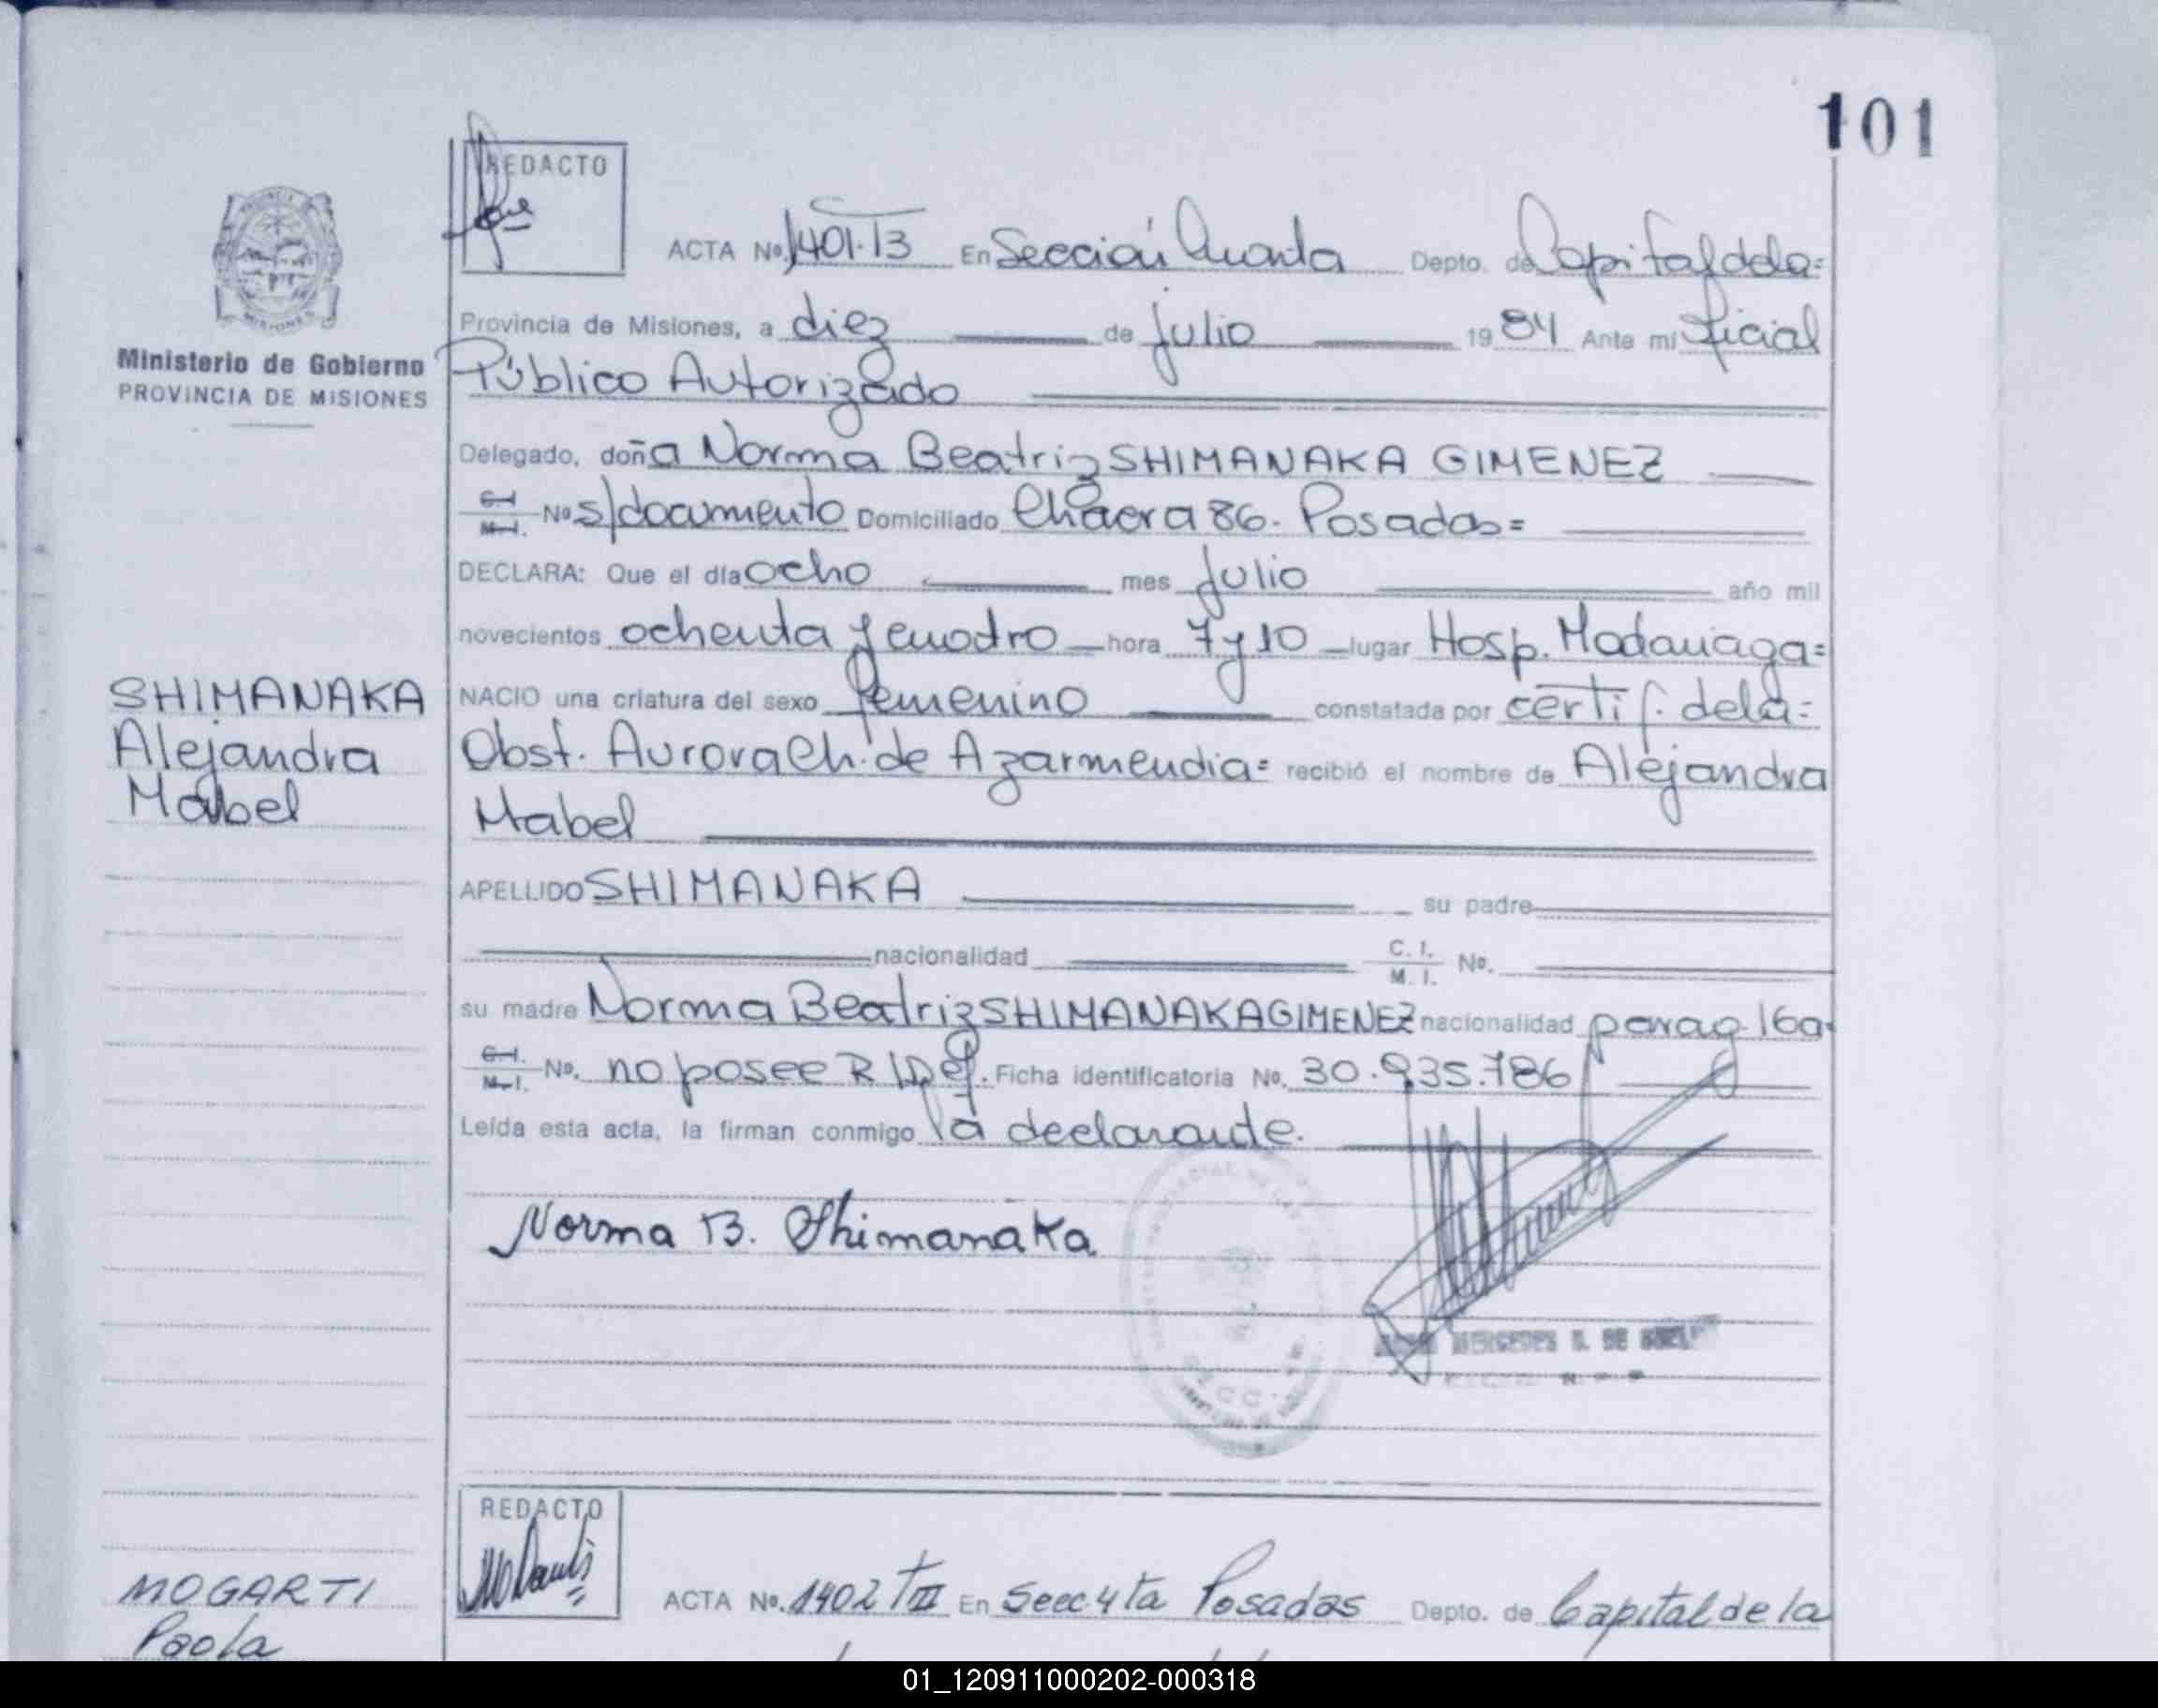 101
REDACTO
ACTA No. 1401.T3 En Sección Cuarta Depto. de Capital de la=
Provincia de Misiones, a diez de julio 1984 Ante mi Oficial
Ministerio de Gobierno
PROVINCIA DE MISIONES
Público Autorizado
Delegado, doña Norma Beatriz SHIMANAKA GIMENEZ
C.I. M.I. No s/documento Domiciliado Chacra 86. Posadas=
DECLARA: Que el día ocho mes julio año mil
novecientos ochenta y cuatro hora 7 y 10 lugar Hosp. Madariaga=
SHIMANAKA
Alejandra
Mabel
NACIO una criatura del sexo femenino constatada por certif. de la=
Obst. Aurora Ch. de Azarmendia= recibió el nombre de Alejandra
Mabel
APELLIDO SHIMANAKA su padre
nacionalidad C. I. M. I. No.
su madre Norma Beatriz SHIMANAKA GIMENEZ nacionalidad parag. 16a.
C.I. M.I. No. no posee R/Def. Ficha identificatoria No. 30.935.786
Leída esta acta, la firman conmigo la declarante.
Norma B. Shimanaka
MERCEDES
REDACTO
ACTA No. 1402 TIII En Secc 4ta Posadas Depto. de Capital de la
MOGARTI
Paola
01_120911000202-000318